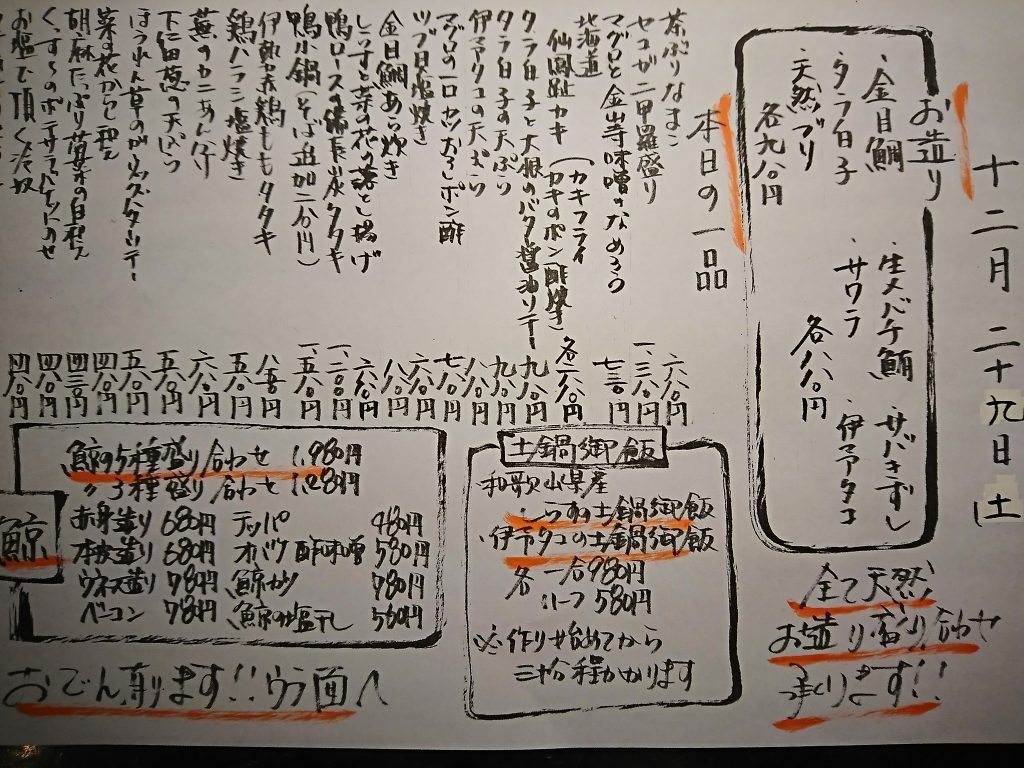 十二月二十九日(土)
お造り
・金目鯛
・タラ白子
・天然ブリ
各九八〇円
・生メバチ鮪
・サワラ
・サバきずし
・伊予タコ
各八八〇円
全て天然
お造り盛り合わせ
承ります!!
本日の一品
茶ぶりなまこ 六八〇円
セコガニ甲羅盛り 一、三八〇円
マグロと金山寺味噌のなめろう 七三〇円
北海道
仙鳳趾カキ (カキフライ
カキのポン酢焼き) 各六八〇円
タラ白子と大根のバター醤油ソテー 九八〇円
タラ白子の天ぷら 九八〇円
伊予タコの天ぷら 八八〇円
マグロの一口カツおろしポン酢 七八〇円
ツブ貝塩焼き 六八〇円
金目鯛あら炊き 八八〇円
しらす子と菜の花の落とし揚げ 六八〇円
鴨ロースの備長炭タタキ 一、二〇〇円
鴨小鍋(そば追加二八〇円) 一、五八〇円
伊勢赤鶏ももタタキ 八五〇円
鶏バラシ塩焼き 五八〇円
蕪のカニあんかけ 六八〇円
下仁田葱の天ぷら 五八〇円
ほうれん草のガーリックバターソテー 五八〇円
菜の花からし和え 四八〇円
胡麻たっぷり春菊の白和え 四三〇円
四八〇円
お塩で頂く冷奴 四八〇円
土鍋御飯
和歌山県産
しらすの土鍋御飯
伊予タコの土鍋御飯
各 一合980円
ハーフ580円
※作り始めてから
三十分程かかります
鯨
鯨の5種盛り合わせ 1,980円
〃3種盛り合わせ 1,280円
赤身造り 680円 テッパ 480円
本皮造り 680円 オバケ酢味噌 580円
ウネス造り 780円 鯨カツ 780円
ベーコン 780円 鯨の塩干し 560円
おでん有ります!!ウラ面へ